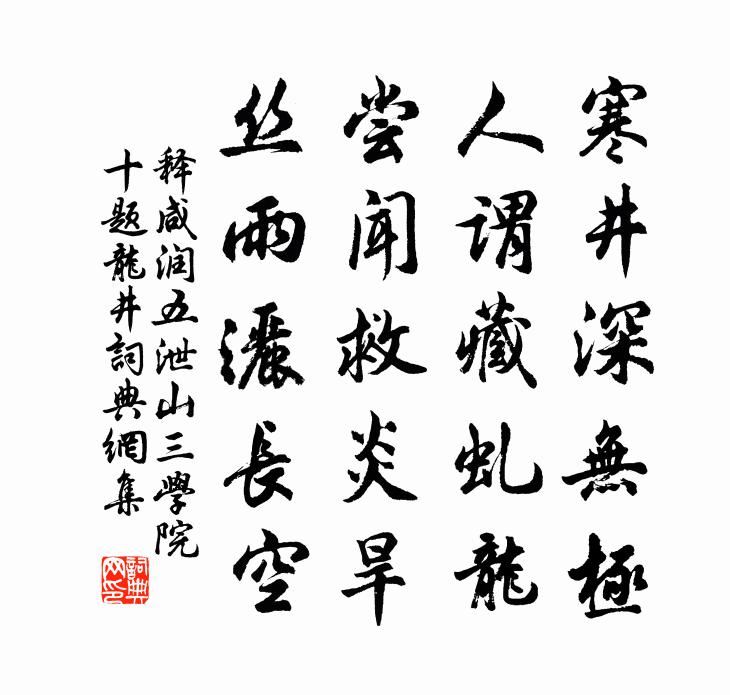 寒井深無極
人謂藏虬龍
尝闻救炎旱
丝雨灑長空
释咸润五泄山三學院
十题龍井詞典網集
詞典
网印